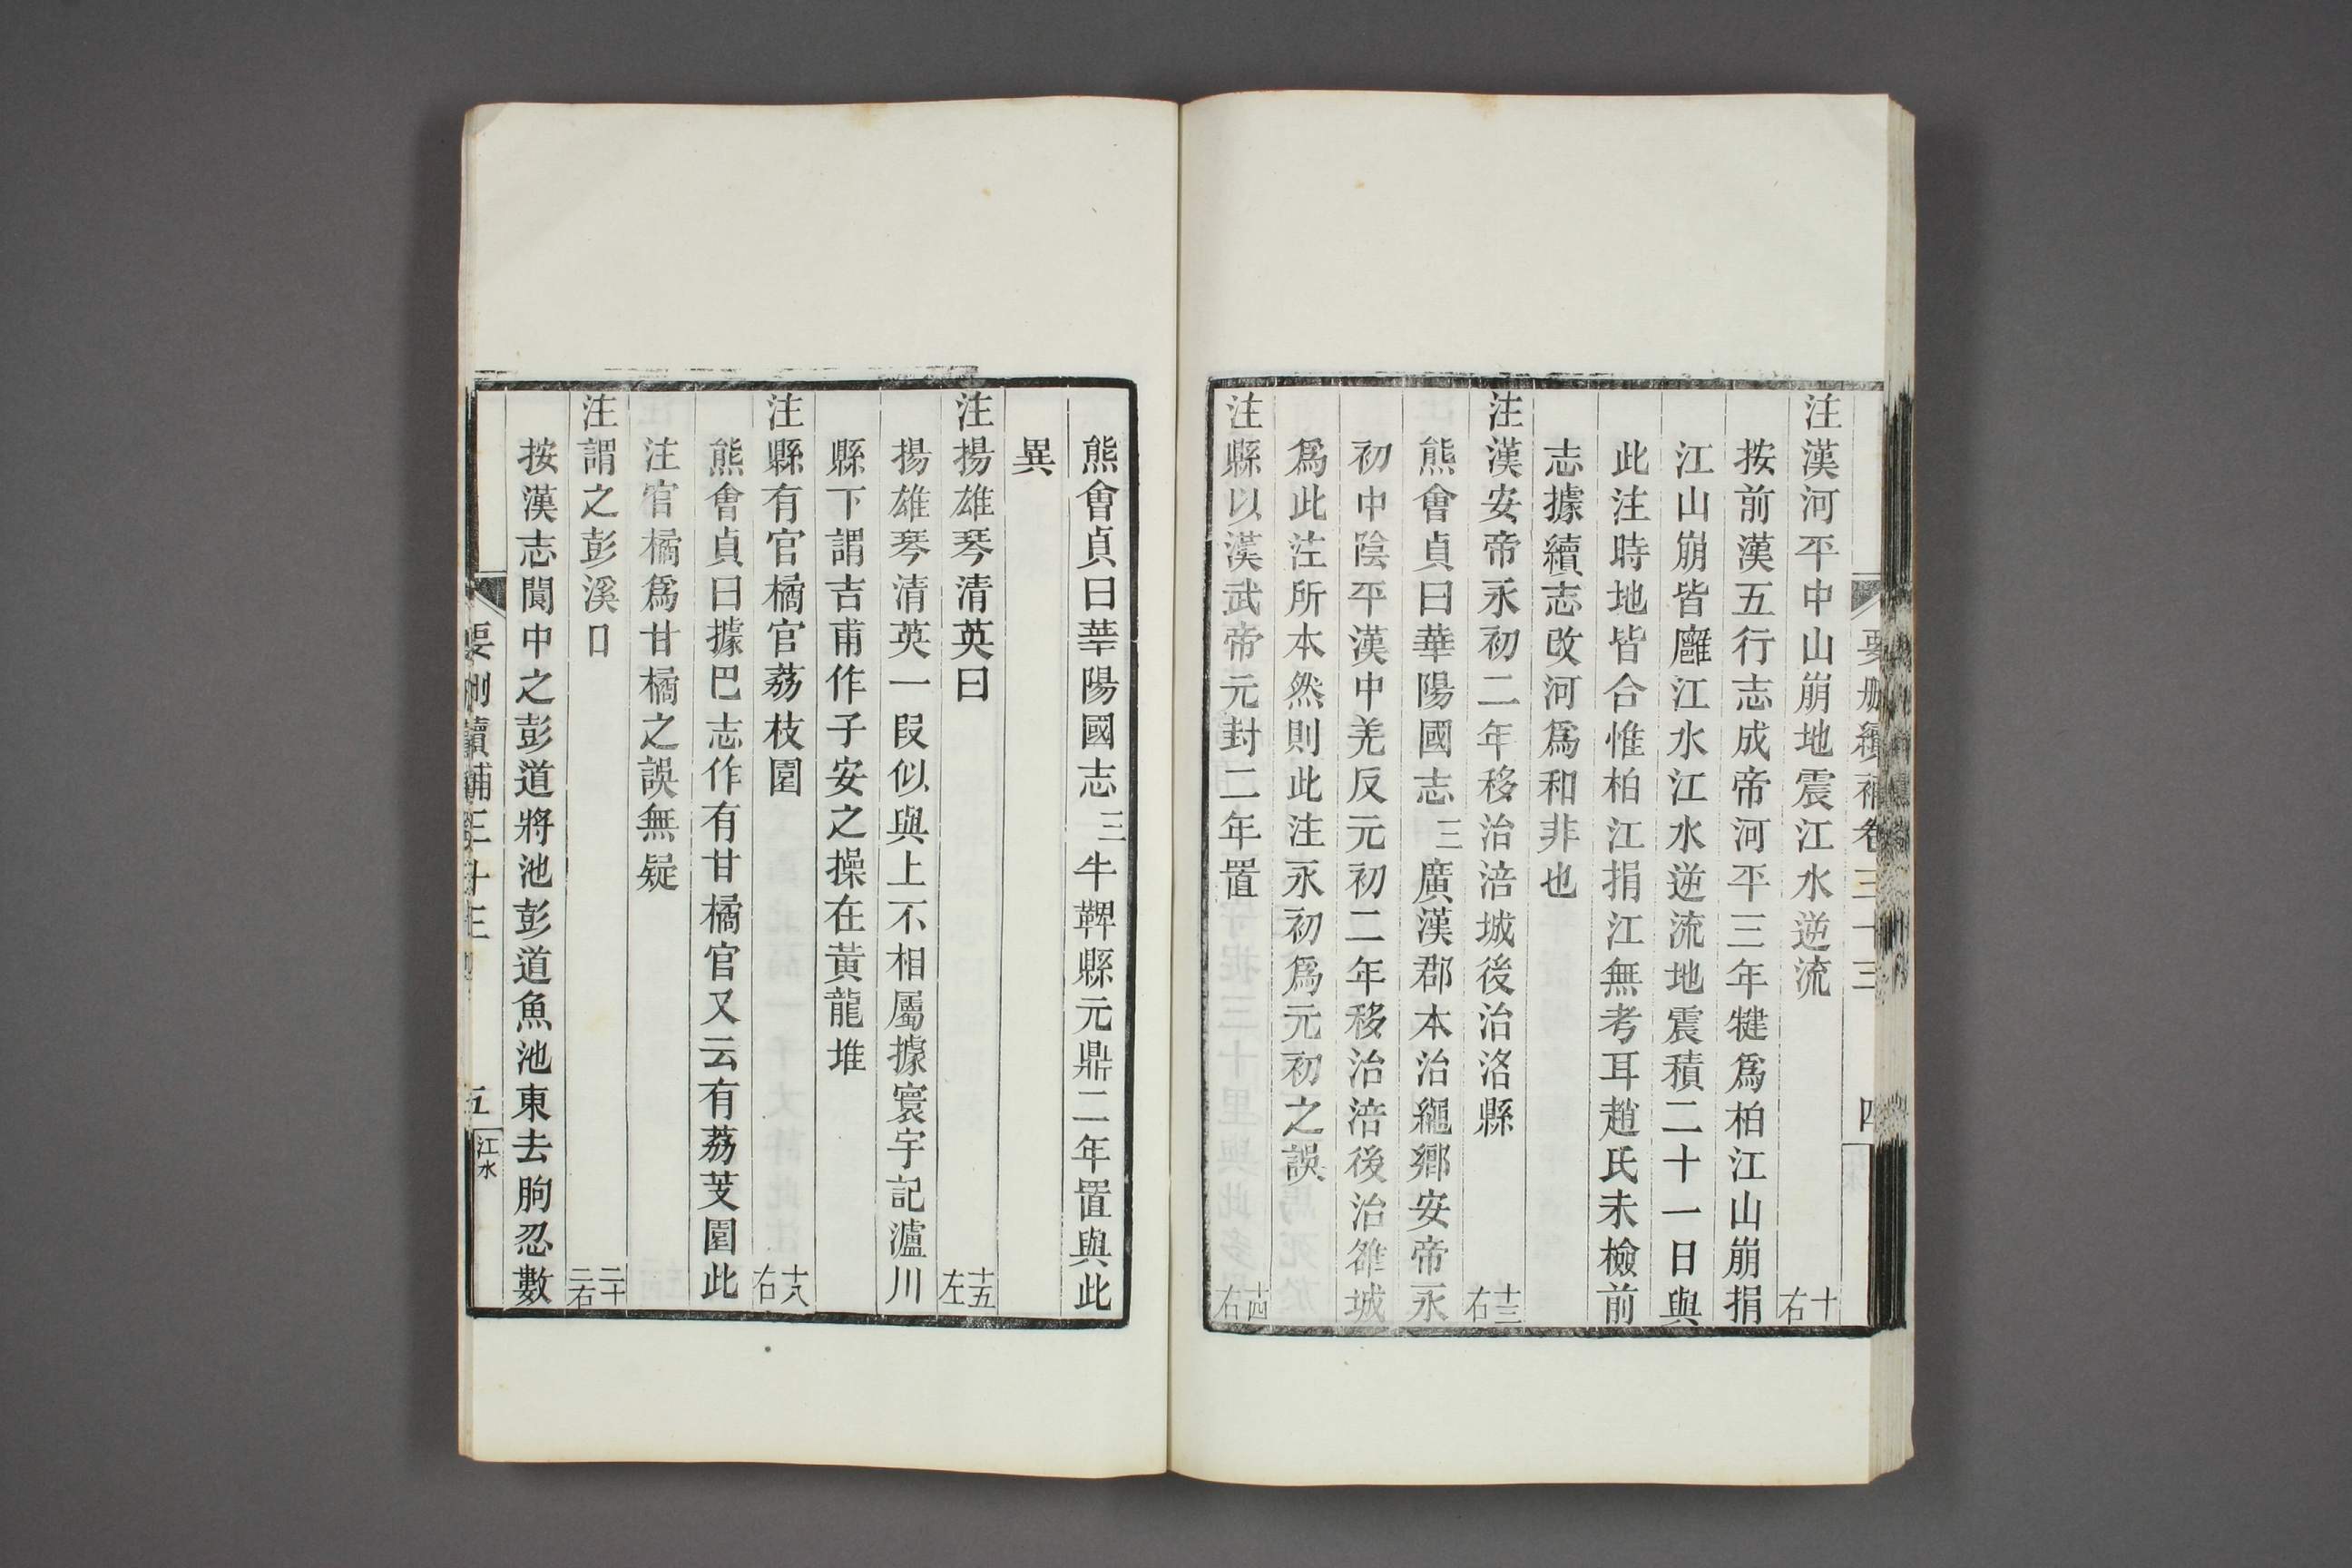 要刪續補卷三十三 四
注漢河平中山崩地震江水逆流 十右
按前漢五行志成帝河平三年犍爲柏江山崩捐
江山崩皆廱江水江水逆流地震積二十一日與
此注時地皆合惟柏江捐江無考耳趙氏未檢前
志據續志改河爲和非也
注漢安帝永初二年移治涪城後治洛縣 十三右
熊會貞曰華陽國志三廣漢郡本治繩鄉安帝永
初中陰平漢中羌反元初二年移治涪後治雒城
爲此注所本然則此注永初爲元初之誤
注縣以漢武帝元封二年置 十四右
熊會貞曰華陽國志三牛鞞縣元鼎二年置與此
異
注揚雄琴清英曰 十五左
揚雄琴清英一段似與上不相屬據寰宇記瀘川
縣下謂吉甫作子安之操在黃龍堆
注縣有官橘官荔枝園 十八右
熊會貞曰據巴志作有甘橘官又云有荔芰園此
注官橘爲甘橘之誤無疑
注謂之彭溪口 二十二右
按漢志閬中之彭道將池彭道魚池東去朐忍數
要刪續補三十三 五 江水